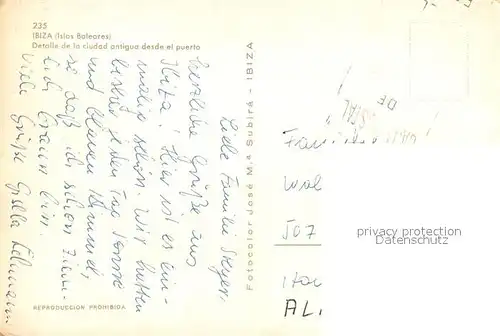 235
IBIZA (Islas Baleares)
Detalle de la ciudad antigua desde el puerto
Liebe Familie
herzliche Grüße aus
Ibiza! Hier ist es ein-
malig schön. Wir hatten
bisher jeden Tag Sonne
und blauen Himmel,
so daß ich schon ziem-
lich braun bin.
Viele Grüße Gisela
Fotocolor José M.ª Subirá - IBIZA
REPRODUCCION PROHIBIDA
DE
Familie
507
AL.
privacy protection
Datenschutz